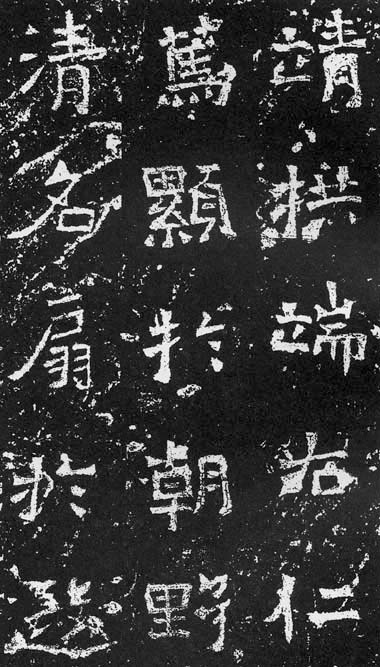 靖拱端右仁
篤顯於朝野
清名扇於